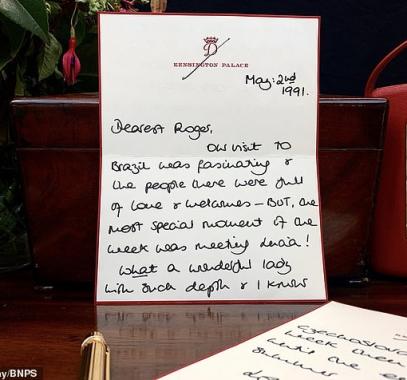 D
KENSINGTON PALACE
May: 2nd
1991.
Dearest Roger,
Our visit to
Brazil was fascinating &
the people there were full
of love & welcomes – BUT, the
most special moment of the
week was meeting Lucia!
What a wonderful lady
with such depth & I know
Czechoslova
week then
until the e
summer
y/BNPS